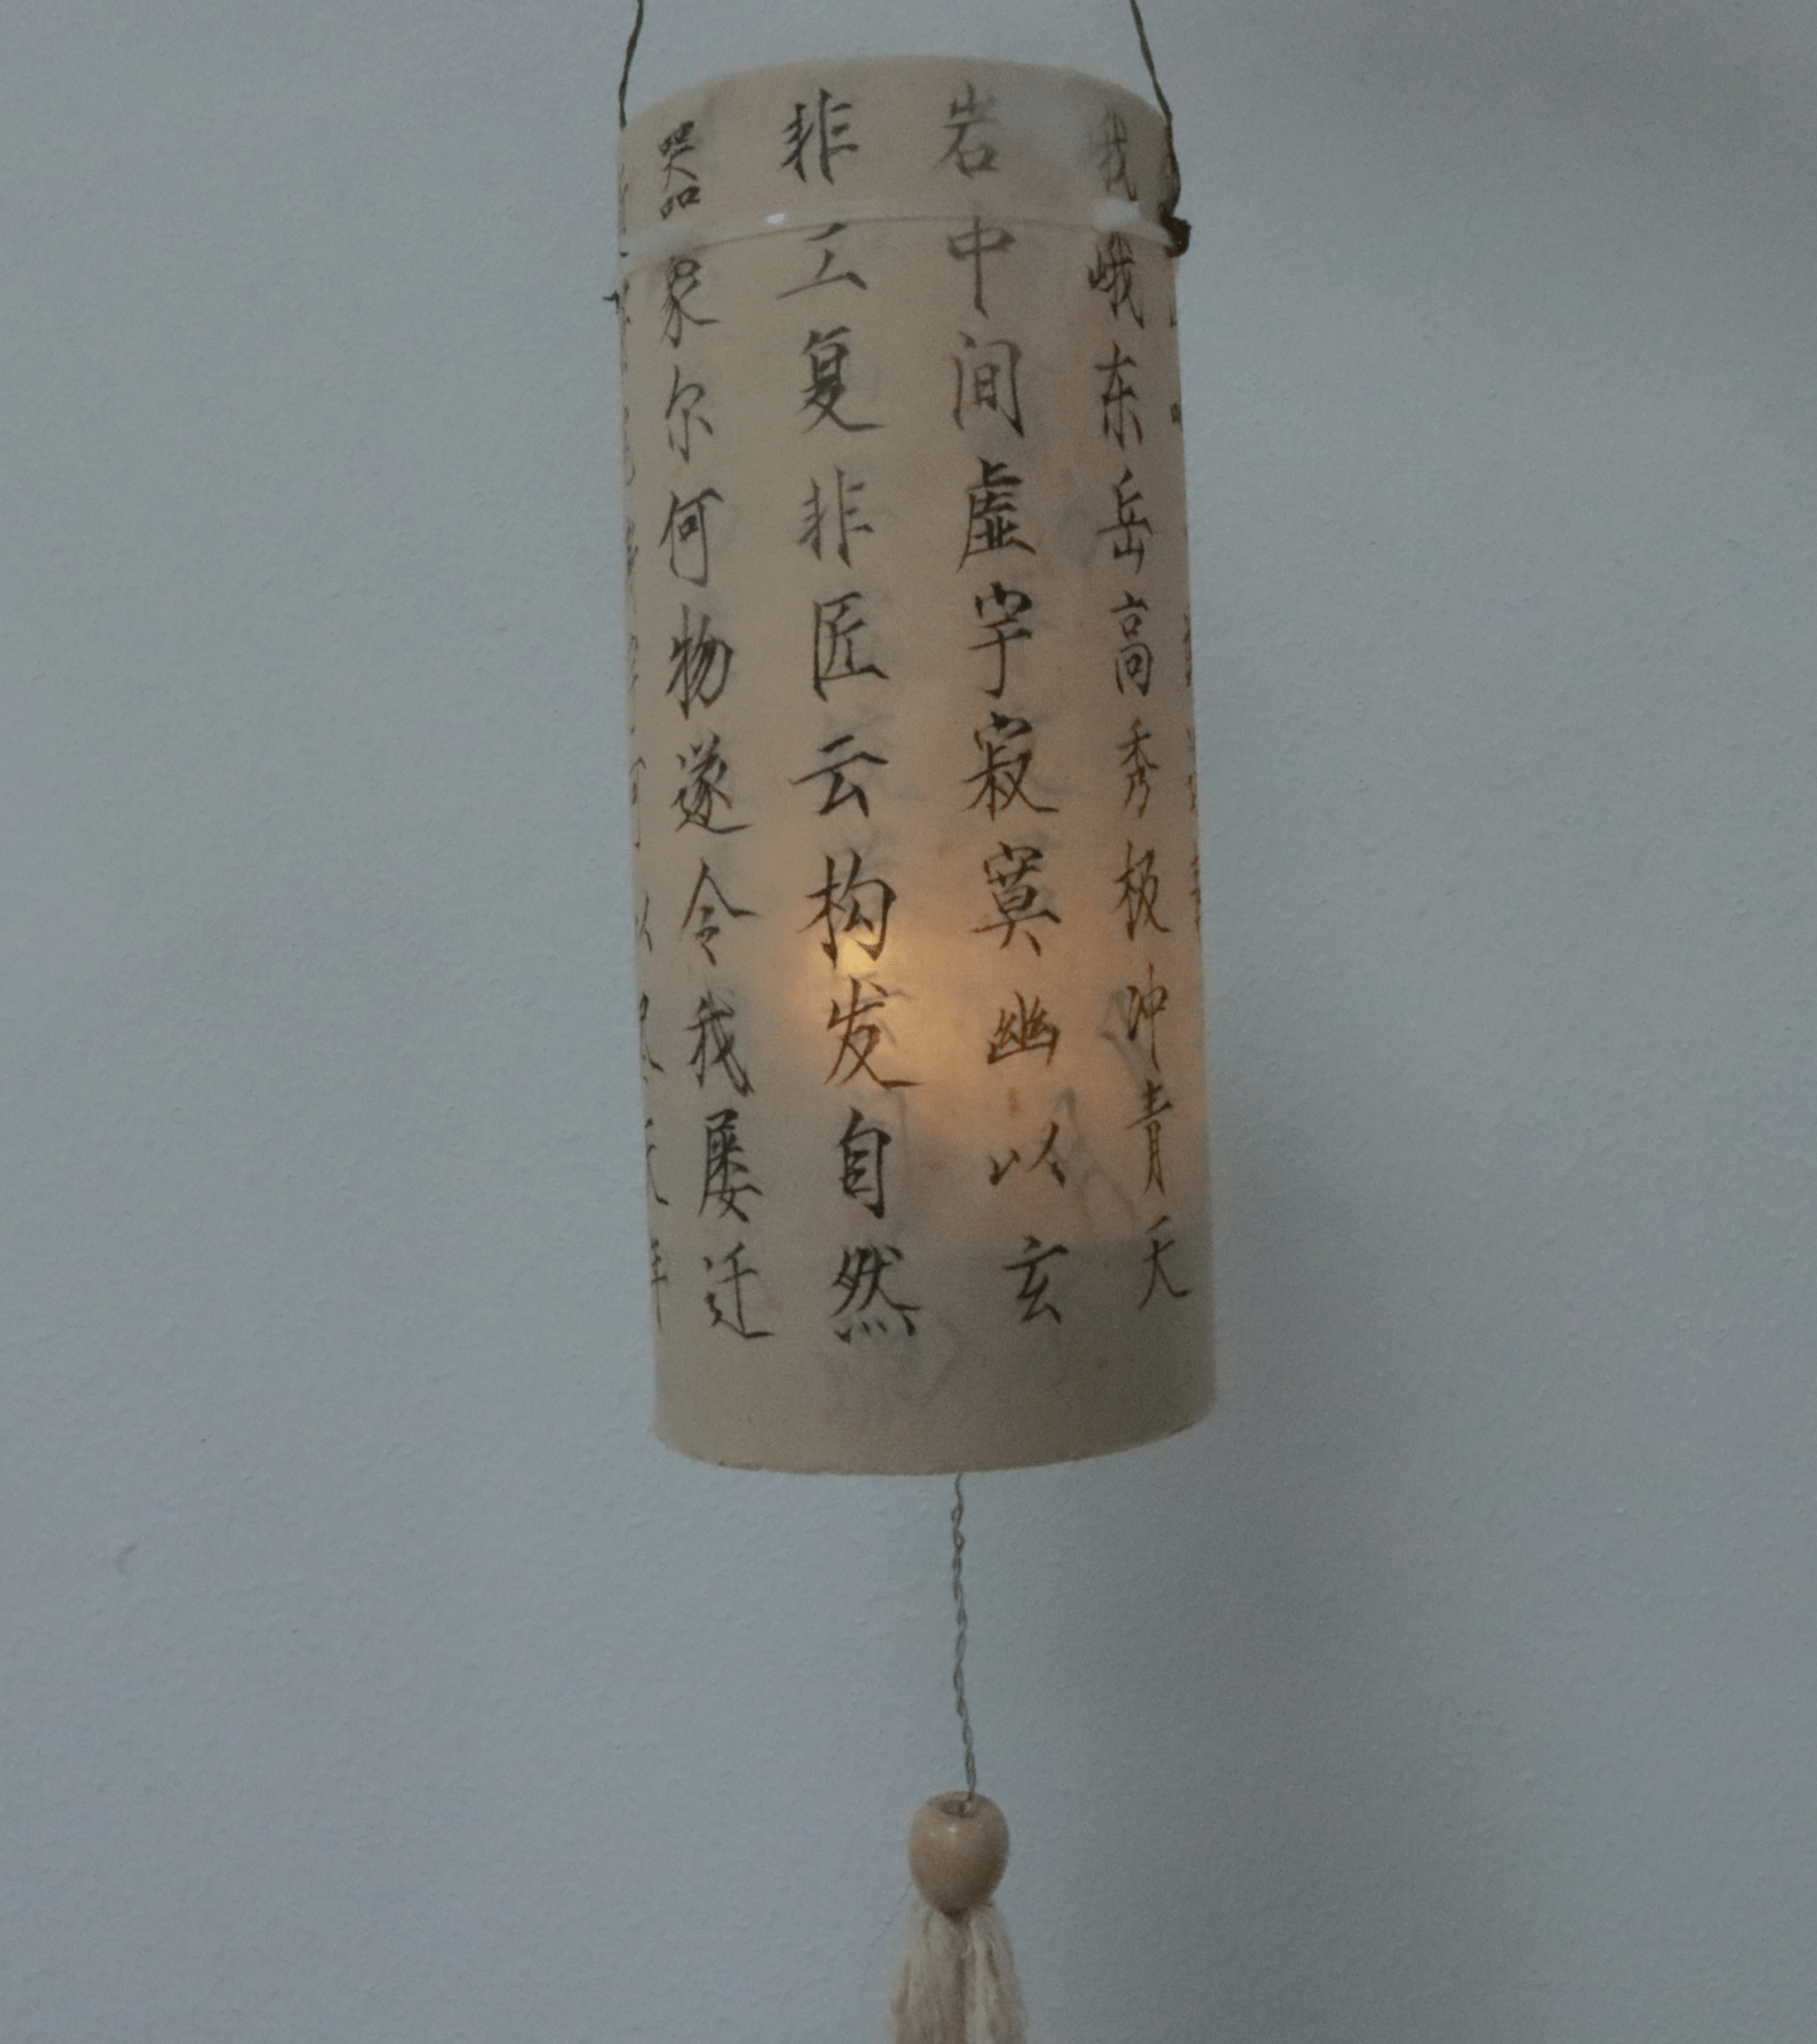 峨峨东岳高秀极冲青天
岩中间虚宇寂寞幽以玄
非工复非匠云构发自然
器象尔何物遂令我屡迁